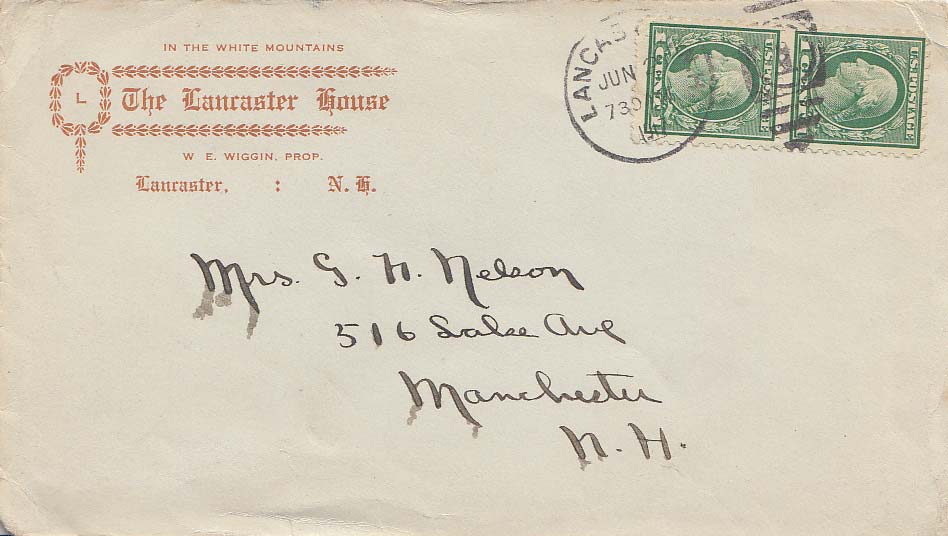 IN THE WHITE MOUNTAINS
L
The Lancaster House
W. E. WIGGIN, PROP.
Lancaster, : N. H.
LANCAS
JUN
730
U.S. POSTAGE
U.S. POSTAGE
Mrs. G. H. Nelson
516 Lake Ave
Manchester
N. H.